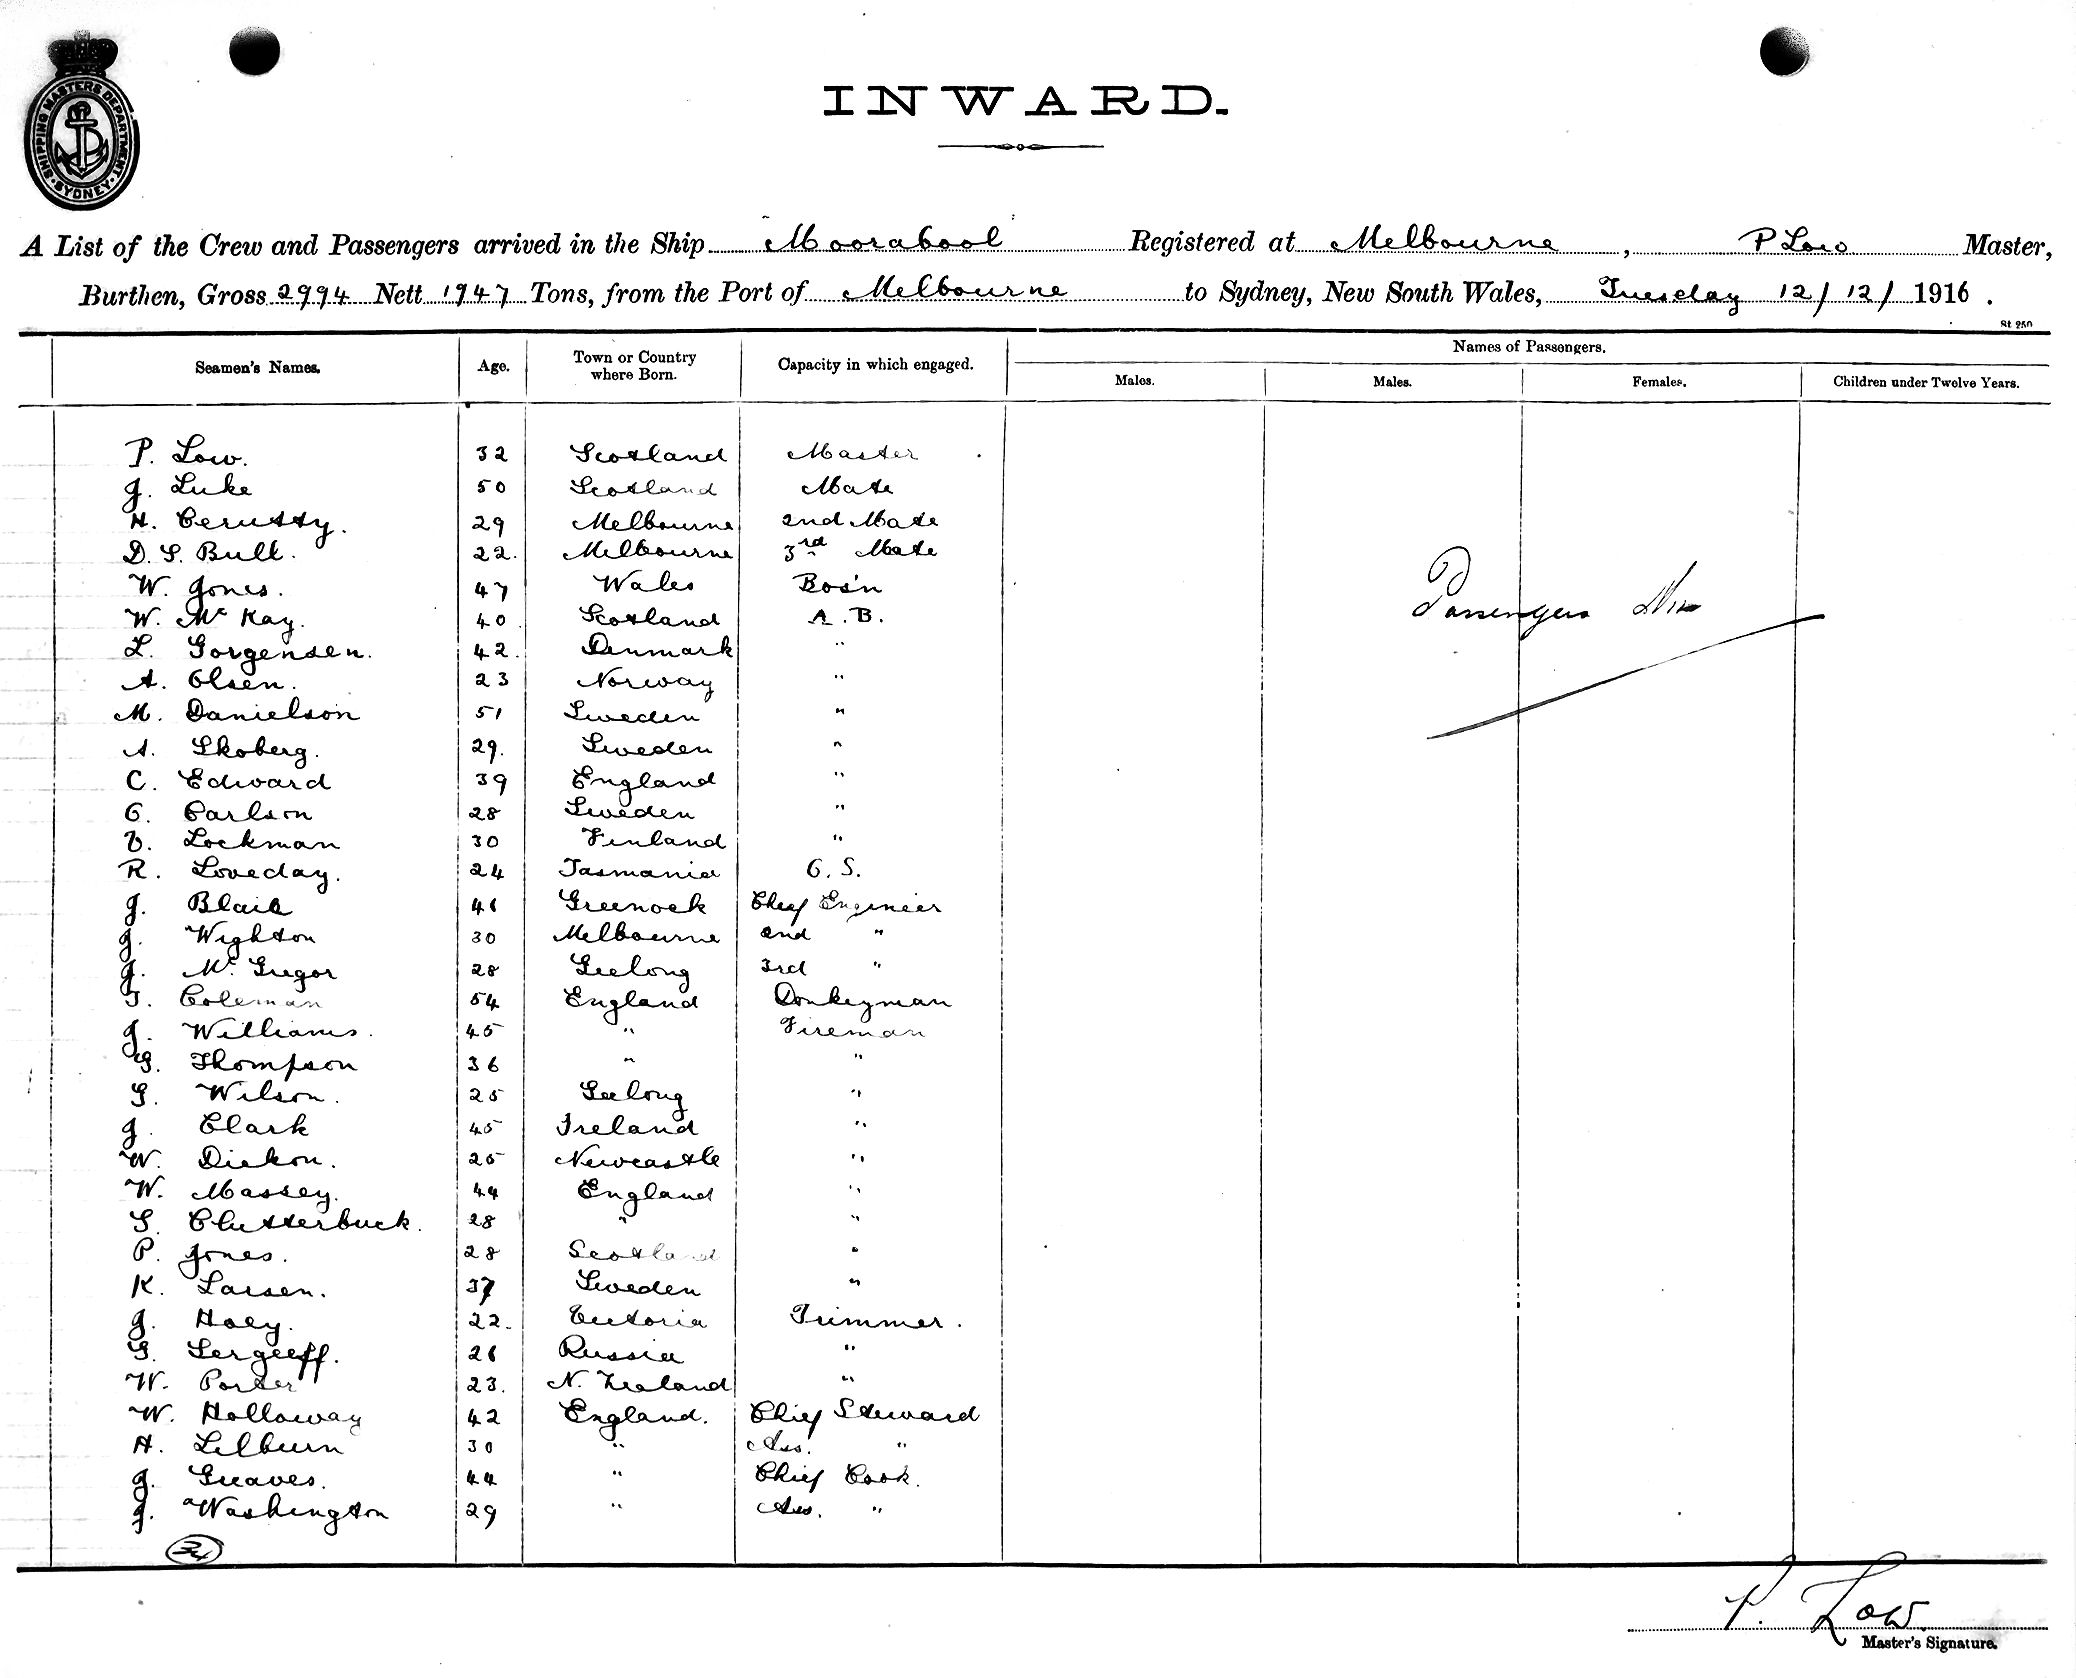 SHIPPING MASTERS DEPARTMENT
SYDNEY
INWARD.
A List of the Crew and Passengers arrived in the Ship Moorabool Registered at Melbourne, P Low Master,
Burthen, Gross 2994 Nett 1747 Tons, from the Port of Melbourne to Sydney, New South Wales, Tuesday 12/12/1916.
St 250
Seamen's Names. Age. Town or Country where Born. Capacity in which engaged. Names of Passengers.
Males. Males. Females. Children under Twelve Years.
P. Low. 32 Scotland Master
J. Luke 50 Scotland Mate
H. Cerutty. 29 Melbourne 2nd Mate
D. S. Bull. 22. Melbourne 3rd Mate
W. Jones. 47 Wales Bos'n
W. McKay. 40 Scotland A.B.
L. Gorgensen. 42. Denmark "
A. Olsen. 23 Norway "
M. Danielson 51 Sweden "
A. Skoberg. 29. Sweden "
C. Edward 39 England "
O. Carlson 28 Sweden "
V. Lockman 30 Finland "
R. Loveday. 24 Tasmania O.S.
J. Blair 41 Greenock Chief Engineer
J. Wighton 30 Melbourne 2nd "
J. McGregor 28 Geelong 3rd "
T. Coleman 54 England Donkeyman
J. Williams. 45 " Fireman
G. Thompson 36 " "
G. Wilson. 25 Geelong "
J. Clark 45 Ireland "
W. Dickon. 25 Newcastle "
W. Massey. 44 England "
S. Clutterbuck. 28 " "
P. Jones. 28 Scotland "
K. Larsen. 37 Sweden "
J. Hoey. 22. Victoria Trimmer.
G. Sergeeff. 26 Russia "
W. Porter 23. N. Zealand "
W. Holloway 42 England. Chief Steward
H. Lilburn 30 " Ass. "
J. Greaves. 44 " Chief Cook.
J. Washington 29 " Ass. "
34
Passengers Nil
P. Low
Master's Signature.